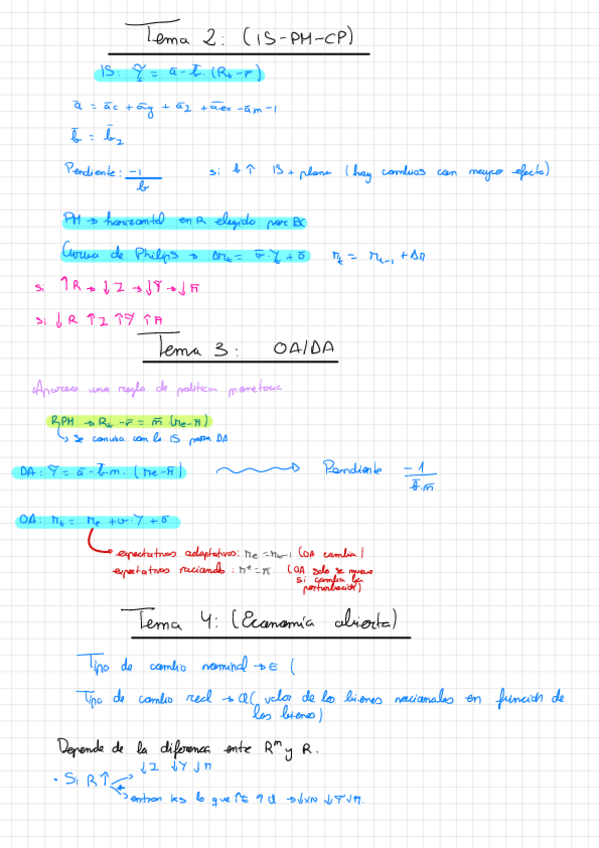 Tema 2: (IS-PM-CP)
IS: Ỹ = ā - b̄. (Rt - r̄)
ā = āc + āg + āI + āex - ām - 1
b̄ = b̄I
Pendiente: -1/b   si b ↑ IS + plana (hay cambios con mayor efecto)
PM → horizontal en R elegido por BC
Curva de Philips → Δπt = v̄·Ỹt + ō   πt = πt-1 + Δπ
si ↑R → ↓I → ↓Ỹ → ↓π
si ↓R ↑I ↑Ỹ ↑π
Tema 3: OA/DA
Aparece una regla de política monetaria
RPM → Rt - r̄ = m̄ (πt - π̄)
se combina con la IS para DA
DA: Ỹ = ā - b̄.m. (πt - π̄)   Pendiente -1/b̄.m̄
OA: πt = πe + v·Ỹ + ō
expectativas adaptativas: πe = πt-1 (OA cambia)
expectativas racionales: πe = π̄ (OA solo se mueve
si cambia la
perturbación)
Tema 4: (Economía abierta)
Tipo de cambio nominal → E (
Tipo de cambio real → Q( valor de los bienes nacionales en función de
los bienes)
Depende de la diferencia entre Rᵐ y R.
· Si R ↑ ↓I ↓Ỹ ↓π
entran ks lo que ↑E ↑Q → ↓XN ↓Ỹ ↓π.